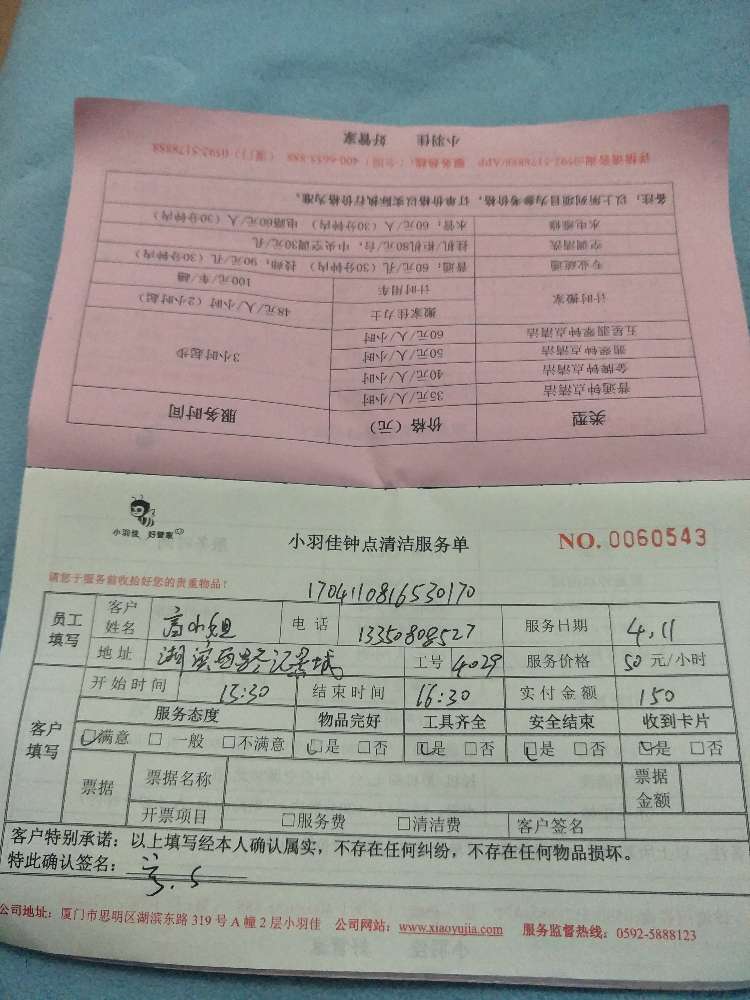 小羽佳 好管家
详情请咨询:0592-5178888/APP 服务热线:(全国) 400-6655-888 (厦门) 0592-5178888
备注:以上所列项目为参考价格,订单价格以实际执行价格为准。
水电维修 水管:60元/人(30分钟内) 电路60元/人(30分钟内)
空调清洗 挂机/柜机80元/台,中央空调30元/孔
专业疏通 普通:60元/孔(30分钟内) 技师:90元/孔(30分钟内)
计时搬家 计时用车 100元/车/趟
搬家佳力士 48元/人/小时(2小时起)
五星翡翠钟点清洁 60元/人/小时 3小时起步
翡翠钟点清洁 50元/人/小时
金牌钟点清洁 40元/人/小时
普通钟点清洁 35元/人/小时
类型 价格(元) 服务时间
小羽佳 好管家
小羽佳钟点清洁服务单 NO. 0060543
请您于服务前收拾好您的贵重物品!
1704110816530170
员工填写 客户姓名 高小姐 电话 13350808527 服务日期 4.11
地址 湖滨西路 工号 4029 服务价格 50 元/小时
客户填写 开始时间 13:30 结束时间 16:30 实付金额 150
服务态度 物品完好 工具齐全 安全结束 收到卡片
☑满意 □一般 □不满意 ☑是 □否 ☑是 □否 ☑是 □否 ☑是 □否
票据 票据名称 票据金额
开票项目 □服务费 □清洁费 客户签名
客户特别承诺:以上填写经本人确认属实,不存在任何纠纷,不存在任何物品损坏。
特此确认签名:
公司地址:厦门市思明区湖滨东路 319 号 A 幢 2 层小羽佳 公司网站:www.xiaoyujia.com 服务监督热线:0592-5888123